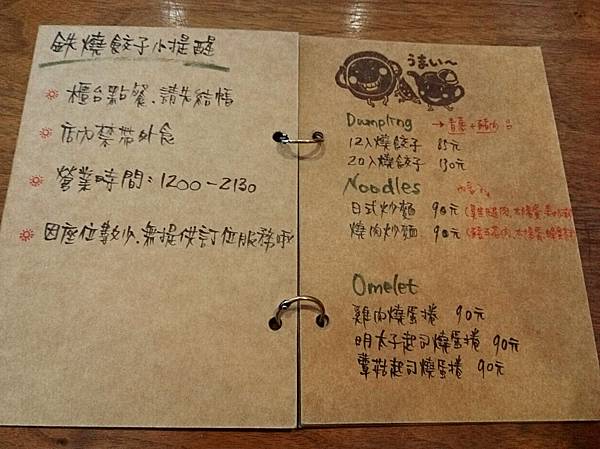 鉄燒餃子小提醒
櫃台點餐、請先結帳
店內禁帶外食
營業時間：1200－2130
因座位數少、無提供訂位服務哦
うまい～
Dumpling → 青蔥+豬肉
12入燒餃子 85元
20入燒餃子 130元
Noodles
日式炒麵 90元
燒肉炒麵 90元
Omelet
雞肉燒蛋捲 90元
明太子起司燒蛋捲 90元
蕈菇起司燒蛋捲 90元